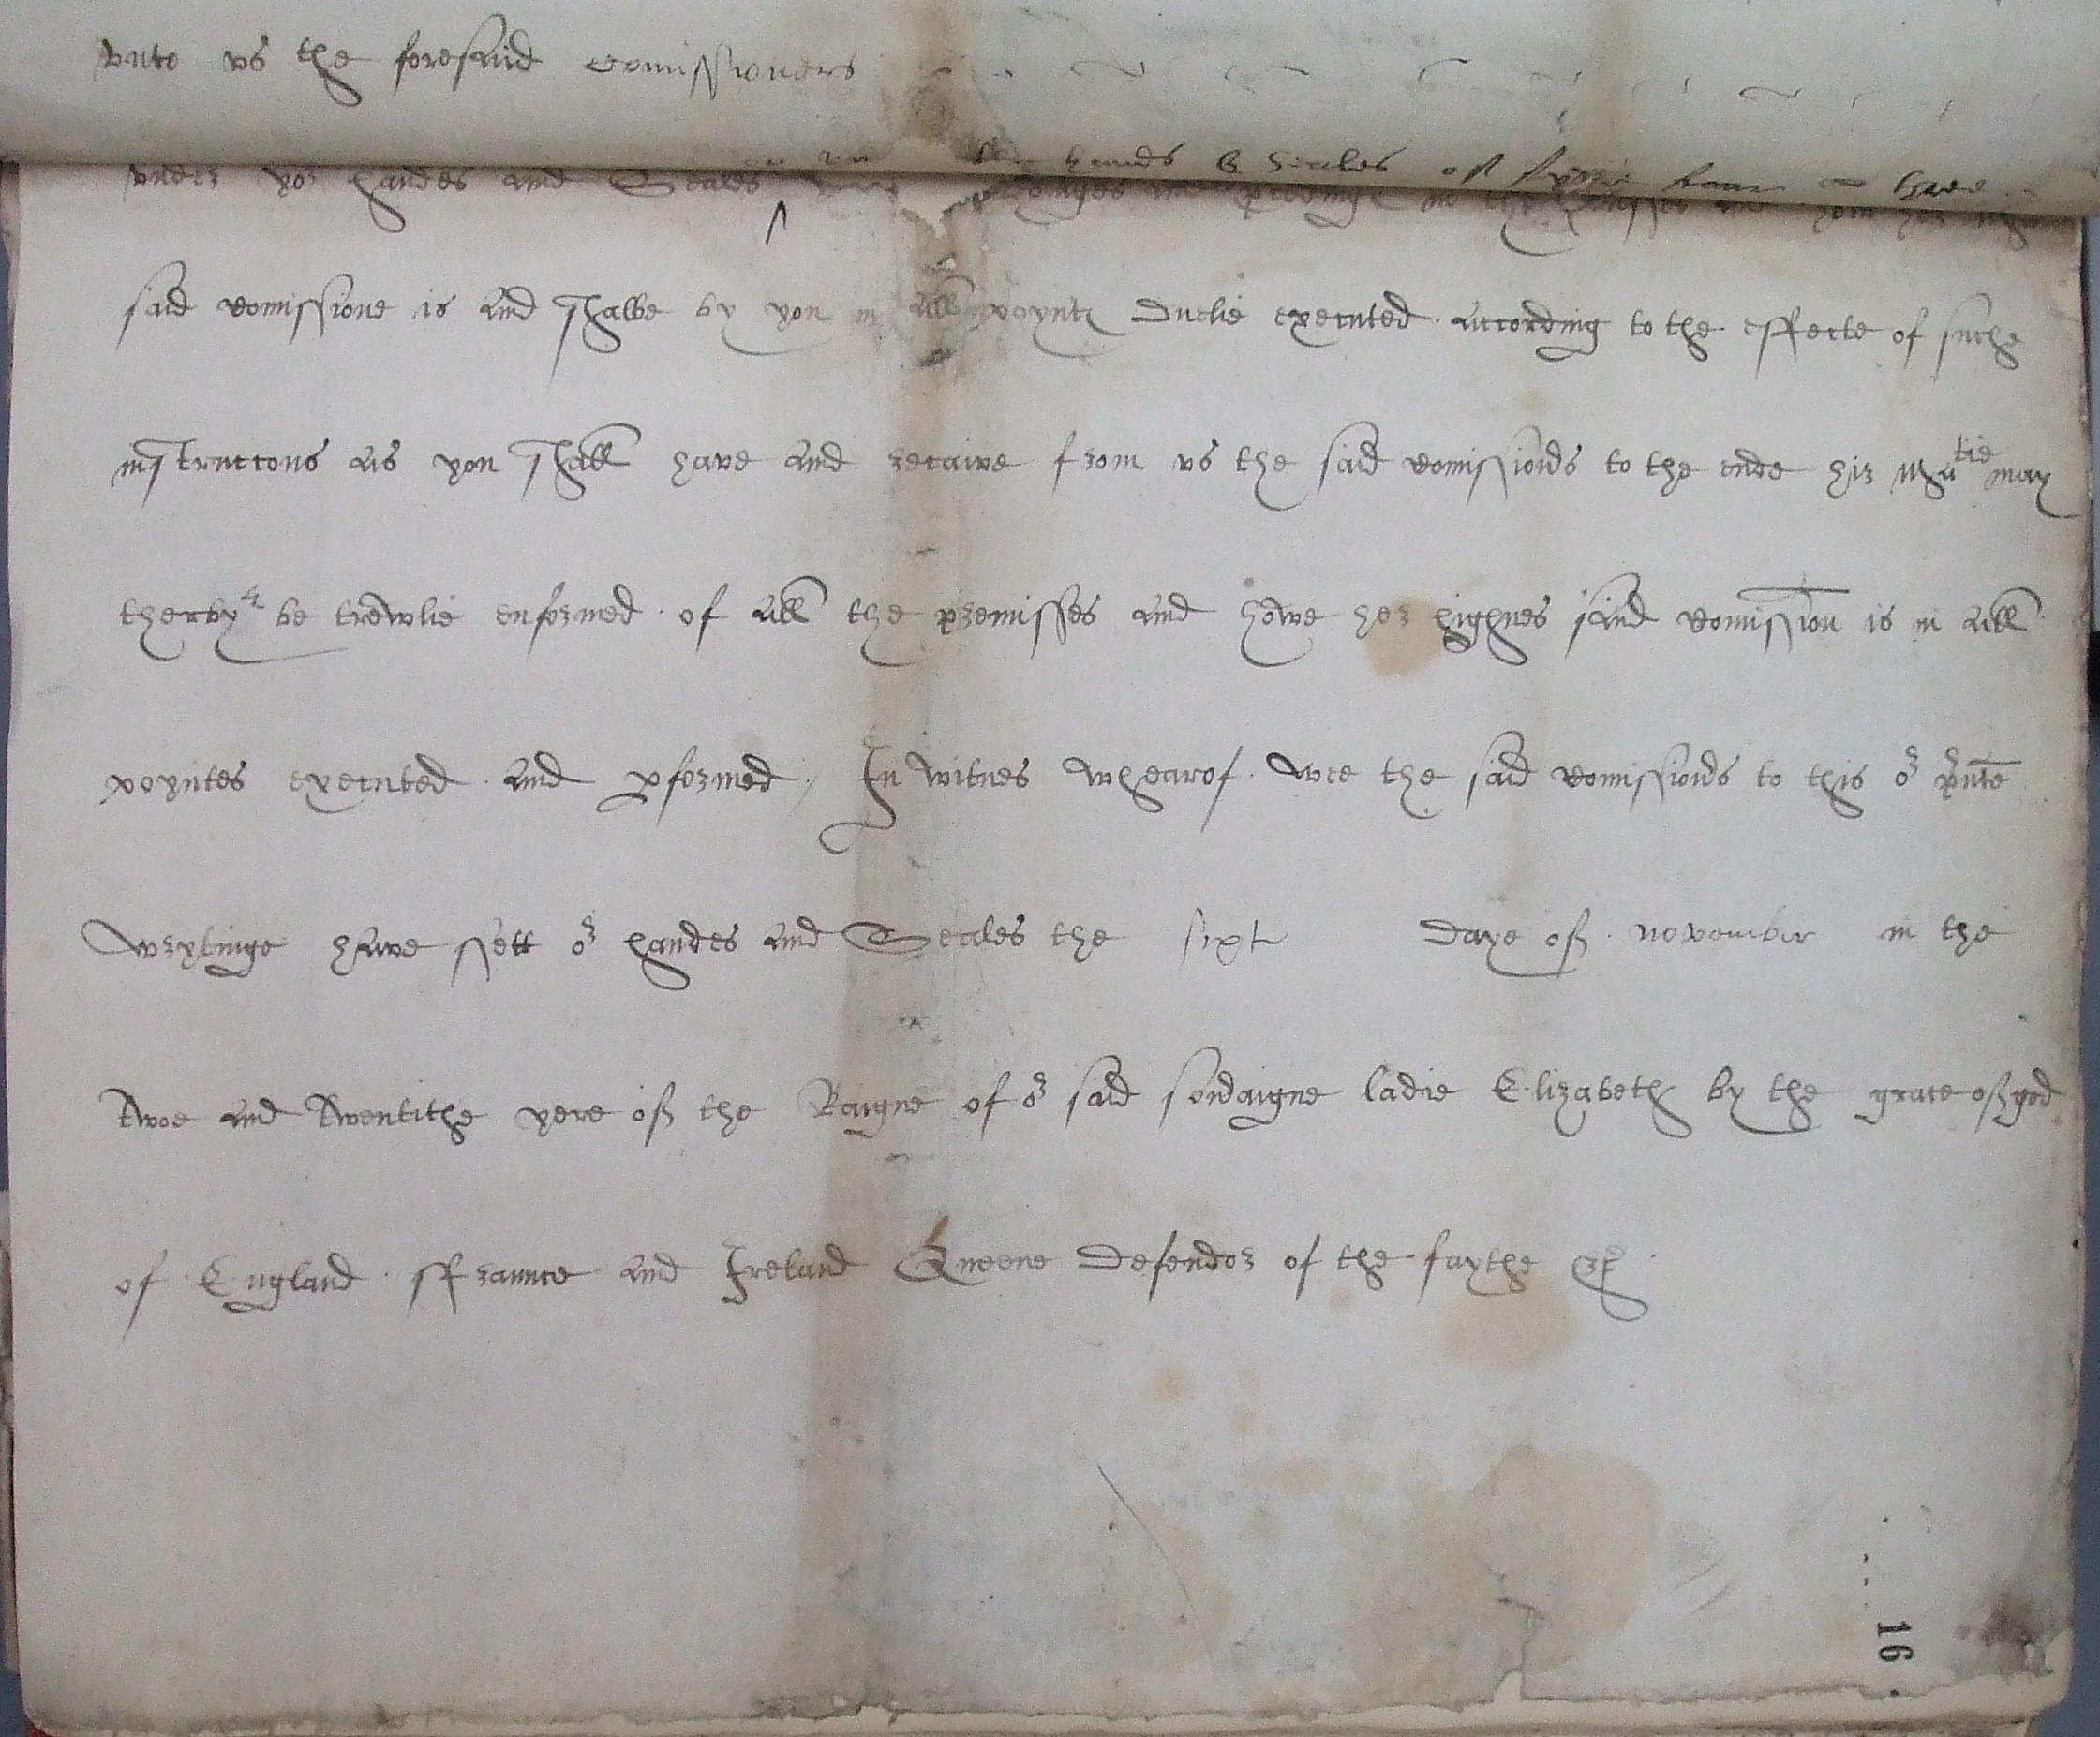 vnto vs the foresaid comissioners
hands & seales of
vnder yor handes and Seales procedinge in the
said comissione is and shalbe by you in all poyntes Duelie executed according to the effecte of suche
instructons as you shall have and receaive from vs the said comissionrs to the ende hir Matie may
therby be trewlie enformed of all the premisses and howe her highnes said comission is in all
poyntes executed and pformed / In witnes whearof wee the said comissionrs to this or pnte
wrytinge have sett or handes and Seales the sixt Daye of november in the
twoe and twentithe yere of the Raigne of or said sovraigne ladie Elizabeth by the grace of god
of England ffraunce and Ireland Queene Defendor of the faythe &c
16